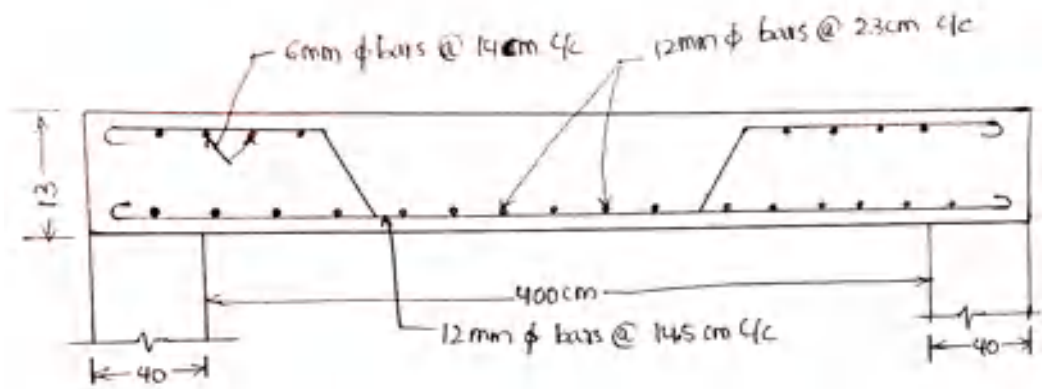 6mm ϕ bars @ 14cm c/c
12mm ϕ bars @ 23cm c/c
13
400cm
12mm ϕ bars @ 14.5cm c/c
40
40